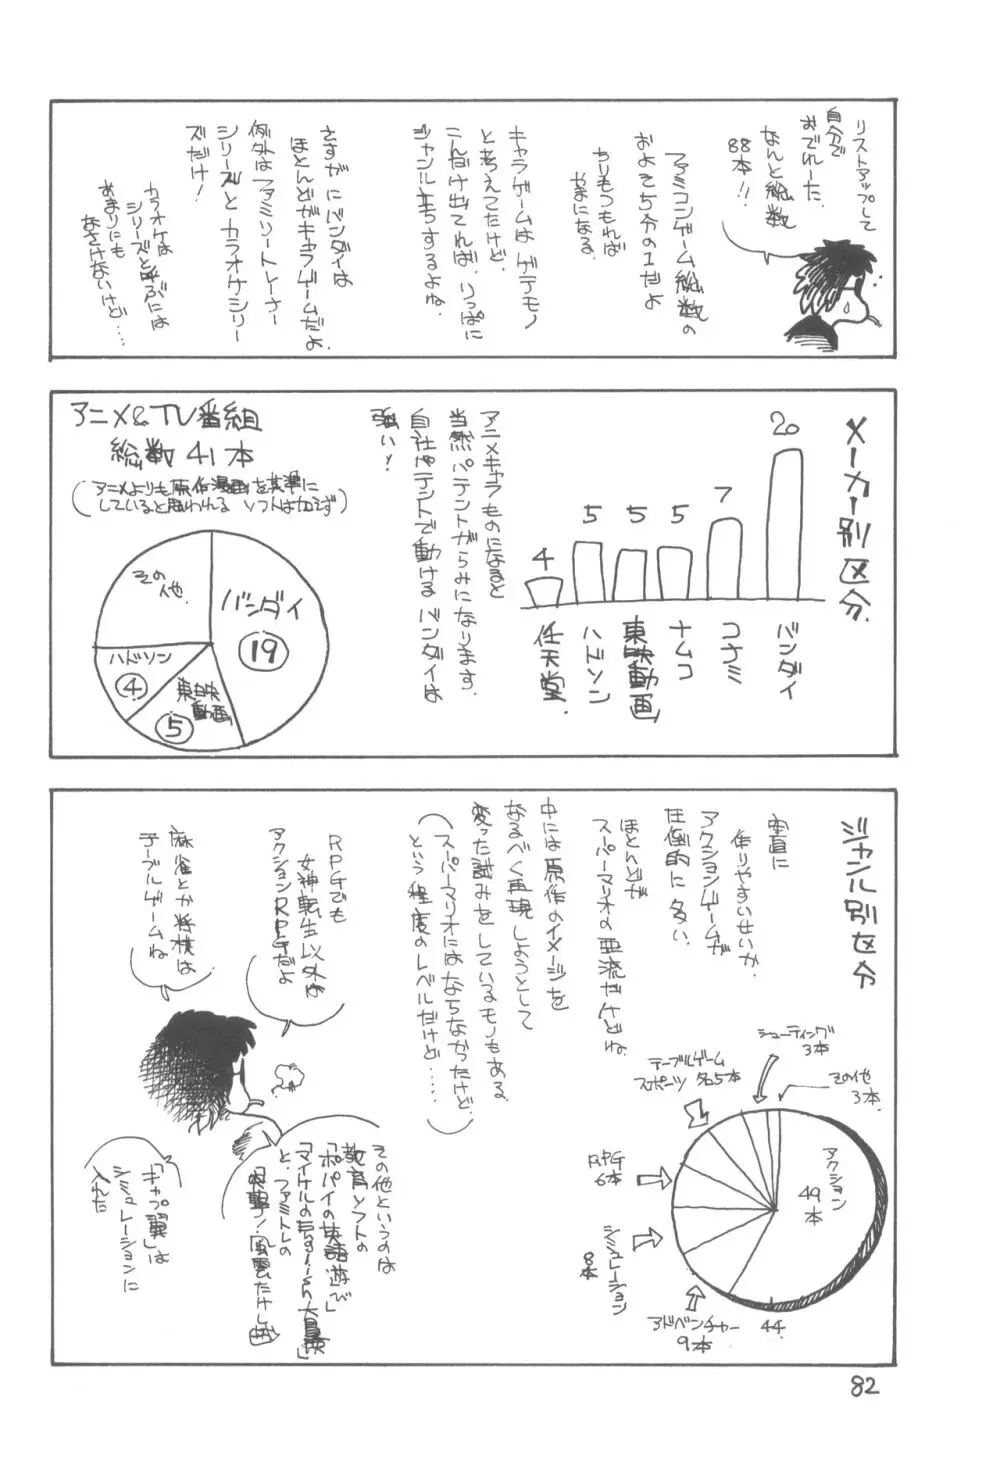 リストアップして
自分で
おどれーた。
なんと総数
88本!!
ファミコンゲーム総数の
およそ5分の1だよ
ちりもつもれば
やまになる。
キャラゲームはゲテモノ
と考えてたけど、
こんだけ出てれば、りっぱに
ジャンル立ちするよね。
さすがにバンダイは
ほとんどがキャラゲームだよ。
例外はファミリートレーナー
シリーズとカラオケシリー
ズだけ!
カラオケは
シリーズと呼ぶには
あまりにも
なさけないけど…
メーカー別区分
20
7
5
5
5
4
バンダイ
コナミ
ナムコ
東映動画
ハドソン
任天堂
アニメキャラものになると
当然パテントがらみになります。
自社パテントで動けるバンダイは
強い!
アニメ&TV番組
総数41本
(アニメよりも原作漫画を基準に
していると思われるソフトは加えず)
バンダイ
19
その他
ハドソン
4
東映動画
5
ジャンル別区分
実直に
作りやすいせいか、
アクションゲームが
圧倒的に多い。
ほとんどが
スーパーマリオの亜流だけどね。
中には原作のイメージを
なるべく再現しようとして
変った試みをしているモノもある。
(スーパーマリオにはならなかったけど、
という程度のレベルだけど……)
RPGでも
女神転生以外は
アクションRPGだよ
麻雀とか将棋は
テーブルゲームね
シューティング
3本
その他
3本
テーブルゲーム
スポーツ 各5本
RPG
6本
シミュレーション
8本
アドベンチャー
9本
44
アクション
49本
その他というのは
教育ソフトの
「ポパイの英語遊び」
「マイケルのEnglish大冒険」
と、ファミトレの
「突撃!風雲たけし城」
「キャプ翼」は
シミュレーションに
入れた
82